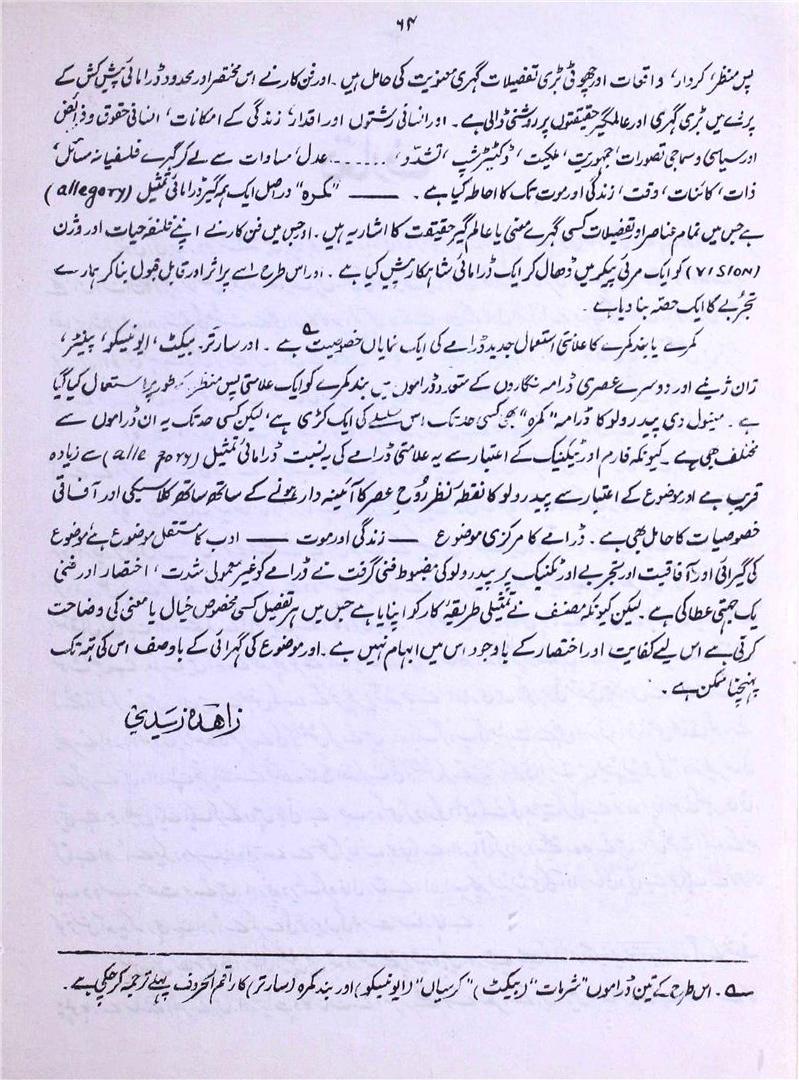 ۶۴
پس منظر، کردار، واقعات اور چھوٹی بڑی تفصیلات گہری معنویت کی حامل ہیں۔ اور فن کار نے اس مختصر اور محدود ڈرامائی پیش کش کے
پردے میں بڑی گہری اور عالمگیر حقیقتوں پر روشنی ڈالی ہے۔ اور انسانی رشتوں اور اقدار، زندگی کے امکانات، انسانی حقوق و فرائض
اور سیاسی و سماجی تصورات، جمہوریت، ملکیت، ڈکٹیٹرشپ، تشدد، ..... عدل، مساوات سے لے کر گہرے فلسفیانہ مسائل،
ذات، کائنات، وقت، زندگی اور موت تک کا احاطہ کیا ہے۔ —— "کمرہ" دراصل ایک ہمہ گیر ڈرامائی تمثیل (allegory)
ہے جس میں تمام عناصر اور تفصیلات کسی گہرے معنی یا عالم گیر حقیقت کا اشاریہ ہیں۔ اور جس میں فن کار نے اپنے فلسفۂ حیات اور وژن
(VISION) کو ایک مرئی پیکر میں ڈھال کر ایک ڈرامائی شاہکار پیش کیا ہے۔ اور اس طرح اسے پراثر اور قابل قبول بنا کر ہمارے
تجربے کا ایک حصہ بنا دیا ہے
کمرے یا بند کمرے کا علامتی استعمال جدید ڈرامے کی ایک نمایاں خصوصیت ہے۔ اور سارتر، بیکٹ، ایونیسکو، پینٹر،
ژان ژینے اور دوسرے عصری ڈرامہ نگاروں کے متعدد ڈراموں میں بند کمرے کو ایک علامتی پس منظر کے طور پر استعمال کیا گیا
ہے۔ مینول دی پیدرولو کا ڈرامہ "کمرہ" بھی کسی حد تک اس سلسلے کی ایک کڑی ہے، لیکن کسی حد تک یہ ان ڈراموں سے
مختلف بھی ہے۔ کیونکہ فارم اور ٹیکنیک کے اعتبار سے یہ علامتی ڈرامے کی بہ نسبت ڈرامائی تمثیل (allegory) سے زیادہ
قریب ہے اور موضوع کے اعتبار سے پیدرولو کا نقطۂ نظر روح عصر کا آئینہ دار ہونے کے ساتھ ساتھ کلاسیکی اور آفاقی
خصوصیات کا حامل بھی ہے۔ ڈرامے کا مرکزی موضوع —— زندگی اور موت —— ادب کا مستقل موضوع ہے موضوع
کی گیرائی اور آفاقیت اور تجربے اور تکنیک پر پیدرولو کی مضبوط فنی گرفت نے ڈرامے کو غیر معمولی شدت، اختصار اور فنی
یک جہتی عطا کی ہے۔ لیکن کیونکہ مصنف نے تمثیلی طریقۂ کار کو اپنایا ہے جس میں ہر تفصیل کسی مخصوص خیال یا معنی کی وضاحت
کرتی ہے اس لیے کفایت اور اختصار کے باوجود اس میں ابہام نہیں ہے۔ اور موضوع کی گہرائی کے باوصف اس کی تہہ تک
پہنچنا ممکن ہے۔
زاہدہ زیدی
۔ اس طرح کے تین ڈراموں "شہ مات" (بیکٹ) "کرسیاں" (ایونیسکو) اور بند کمرہ (سارتر) کا راقم الحروف پہلے ترجمہ کر چکی ہے۔